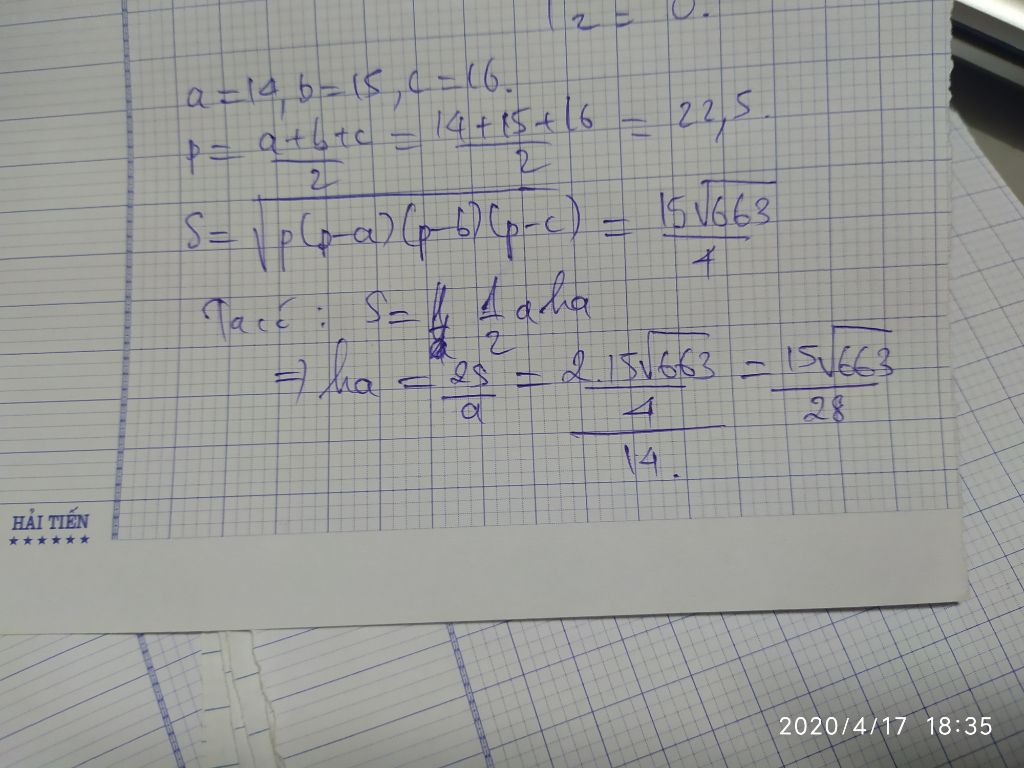 r₂ = 0.
a = 14, b = 15, c = 16.
p = (a+b+c)/2 = (14+15+16)/2 = 22,5.
S = √(p(p-a)(p-b)(p-c)) = 15√663/4
Ta có: S = 1/2 a ha
=> ha = 2S/a = (2.15√663/4)/14. = 15√663/28
HẢI TIẾN
★★★★★★
2020/4/17 18:35